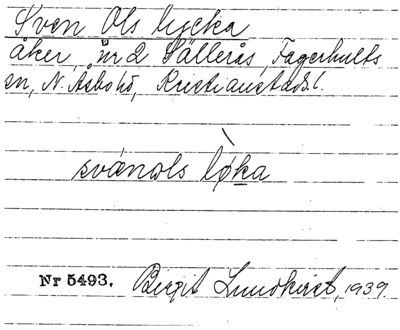 Sven Ols lycka
åker, nr 2 Sällerås, Fagerhults
sn, N. Åsbo hd, Kristianstads l.
svänols lø̀ka
Nr 5493. Birgit Lundkvist, 1939.